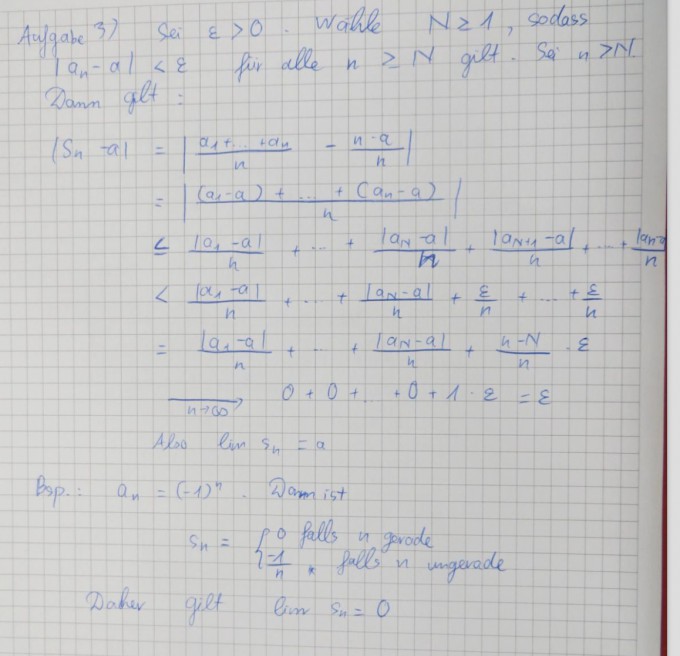 Aufgabe 3) Sei ε > 0. Wähle N ≥ 1, sodass
|aₙ - a| < ε für alle n ≥ N gilt. Sei n > N
Dann gilt:
|Sₙ - a| = | (a₁ + ... + aₙ)/n - (n·a)/n |
= | ((a₁ - a) + ... + (aₙ - a))/n |
≤ |a₁ - a|/n + ... + |a_N - a|/n + |a_{N+1} - a|/n + ... + |aₙ - a|/n
< |a₁ - a|/n + ... + |a_N - a|/n + ε/n + ... + ε/n
= |a₁ - a|/n + ... + |a_N - a|/n + (n - N)/n · ε
→ (n→∞) 0 + 0 + ... + 0 + 1 · ε = ε
Also lim sₙ = a
Bsp.: aₙ = (-1)ⁿ. Dann ist
sₙ = { 0 falls n gerade
{ -1/n falls n ungerade
Daher gilt lim sₙ = 0